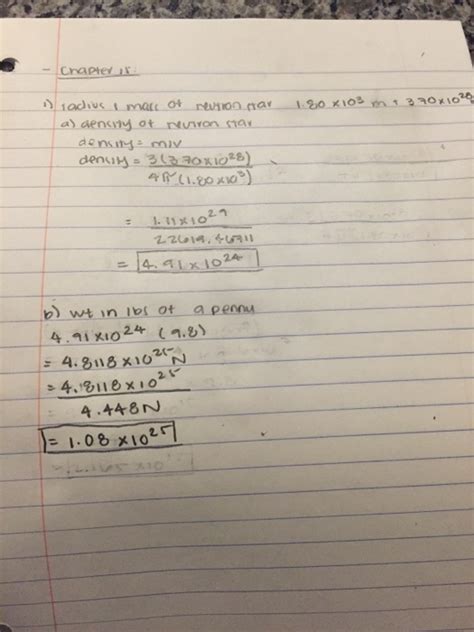 - Chapter 15
1) radius & mass of neutron star 1.80 x 10³ m & 3.70 x 10²⁸
a) density of neutron star
density = m/v
density = 3(3.70x10²⁸)
4π(1.80x10³)
= 1.11x10²⁹
22619.46711
= 4.91 x 10²⁴
b) wt in lbs of a penny
4.91x10²⁴ (9.8)
= 4.8118 x 10²⁵ N
= 4.8118 x 10²⁵
4.448N
= 1.08 x10²⁵